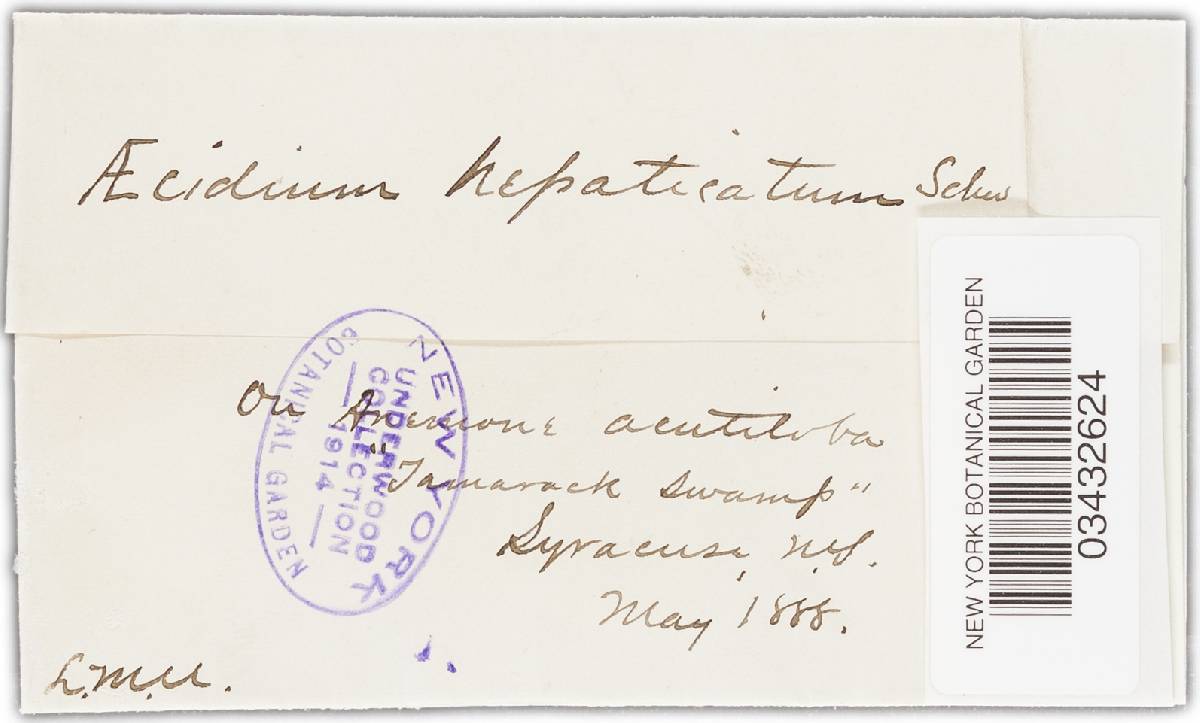 Æcidium hepaticatum Schw
On Anemone acutiloba
"Tamarack Swamp"
Syracuse, N.Y.
May, 1888.
L.M.U.
NEW YORK
BOTANICAL GARDEN
UNDERWOOD
COLLECTION
— 1914 —
NEW YORK BOTANICAL GARDEN
03432624